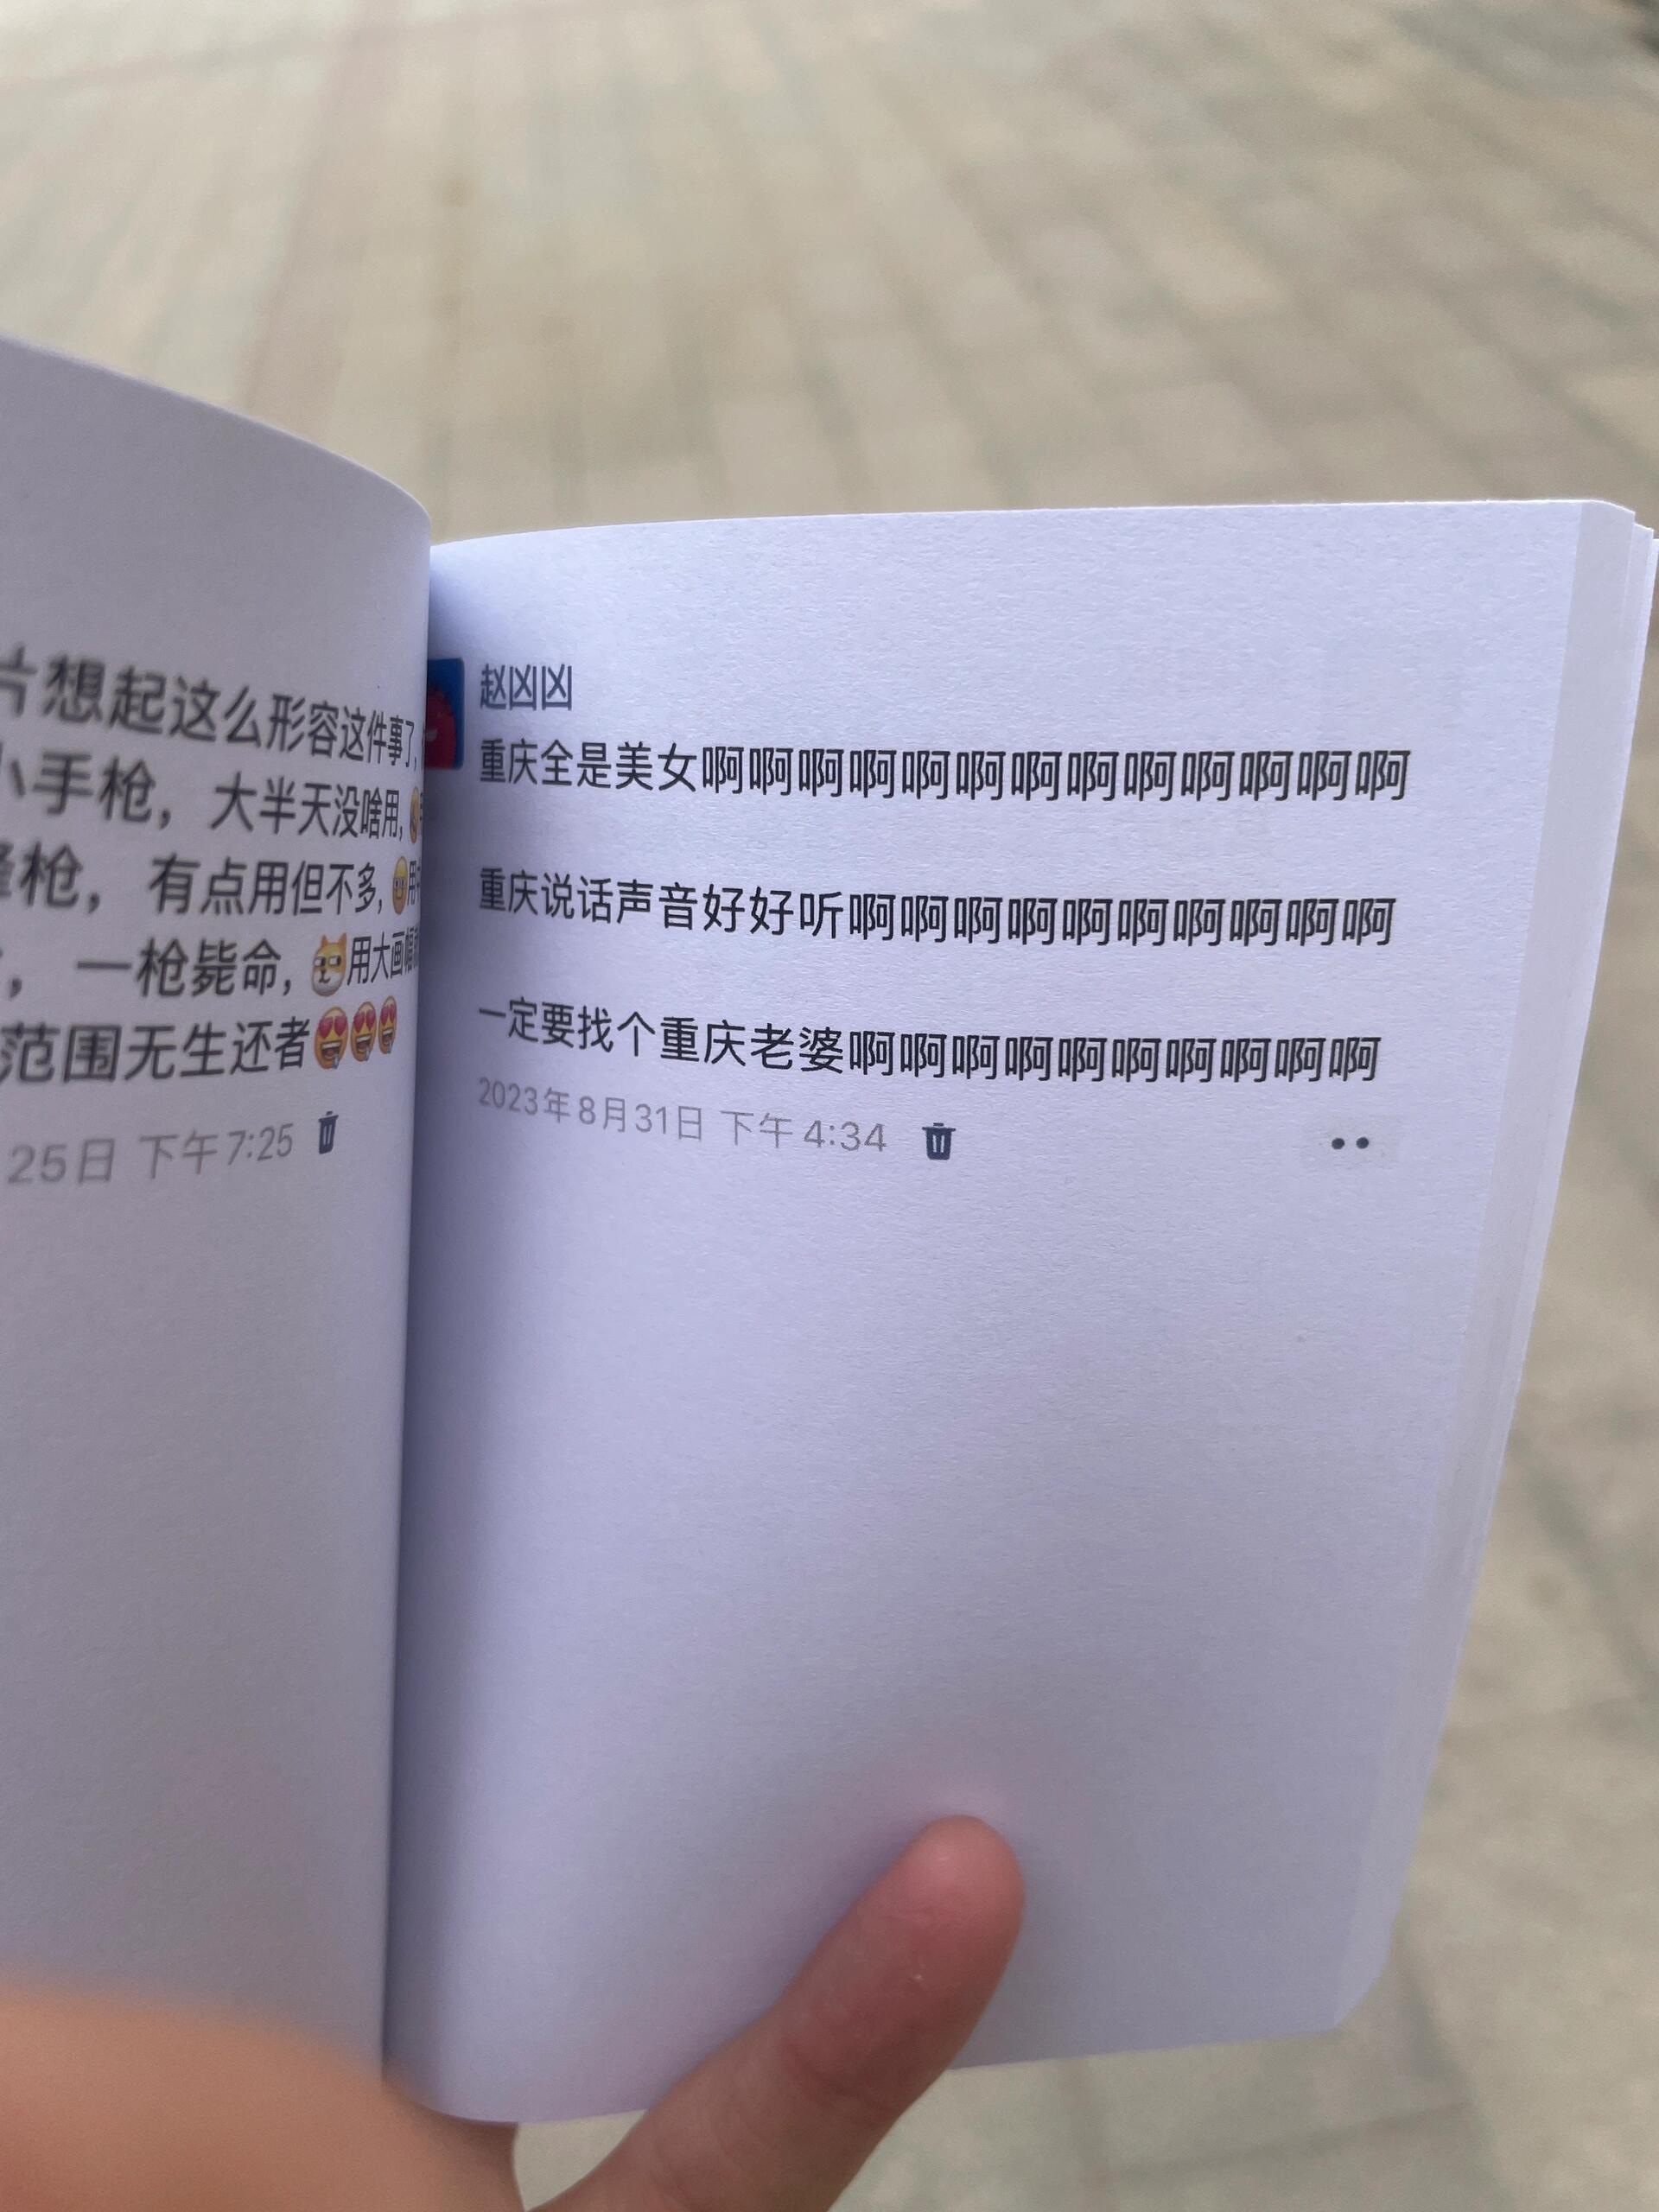 片想起这么形容这件事了,
小手枪，大半天没啥用,
枪，有点用但不多,😁用
，一枪毙命,😼用大画幅
范围无生还者😍😍😍
25日 下午7:25
赵凶凶
重庆全是美女啊啊啊啊啊啊啊啊啊啊啊啊啊
重庆说话声音好好听啊啊啊啊啊啊啊啊啊啊
一定要找个重庆老婆啊啊啊啊啊啊啊啊啊啊
2023年8月31日 下午4:34